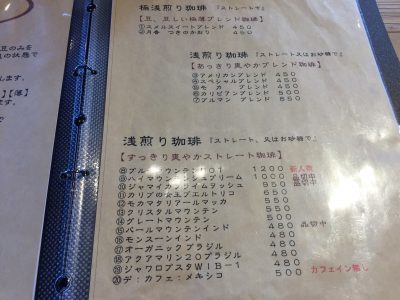 豆のみを
の状態で
ます。
】【落】
極浅煎り珈琲 『ストレートで』
【豆、豆しい極薄ブレンド珈琲】
①スメルスイートブレンド 450
②月香 つきのかおり 450
浅煎り珈琲 『ストレート又はお砂糖で』
【あっさり爽やかブレンド珈琲】
③アメリカンブレンド 450
④スペシャルブレンド 450
⑤モカ ブレンド 480
⑥カリビアンブレンド 500
⑦ブルマン ブレンド 550
浅煎り珈琲 『ストレート、又はお砂糖で』
【すっきり爽やかストレート珈琲】
⑧ブルーマウンテンNo1 1200 新入荷
⑨ハイマウンテンシュプリーム 1000 品切中
⑩ジャマイカプライムウォッシュ 950 品切中
⑪カリブの女王プエルトリコ 650
⑫モカマタリアールマッカ 550
⑬クリスタルマウンテン 550
⑭グレートマウンテン 550
⑮パールマウンテンインド 480 品切中
⑯モンスーンインド 480
⑰オーガニックブラジル 480
⑱アクアマリン20ブラジル 480
⑲ジャワロブスタWIB-1 480
⑳デ:カフェ:メキシコ 500 カフェイン無し